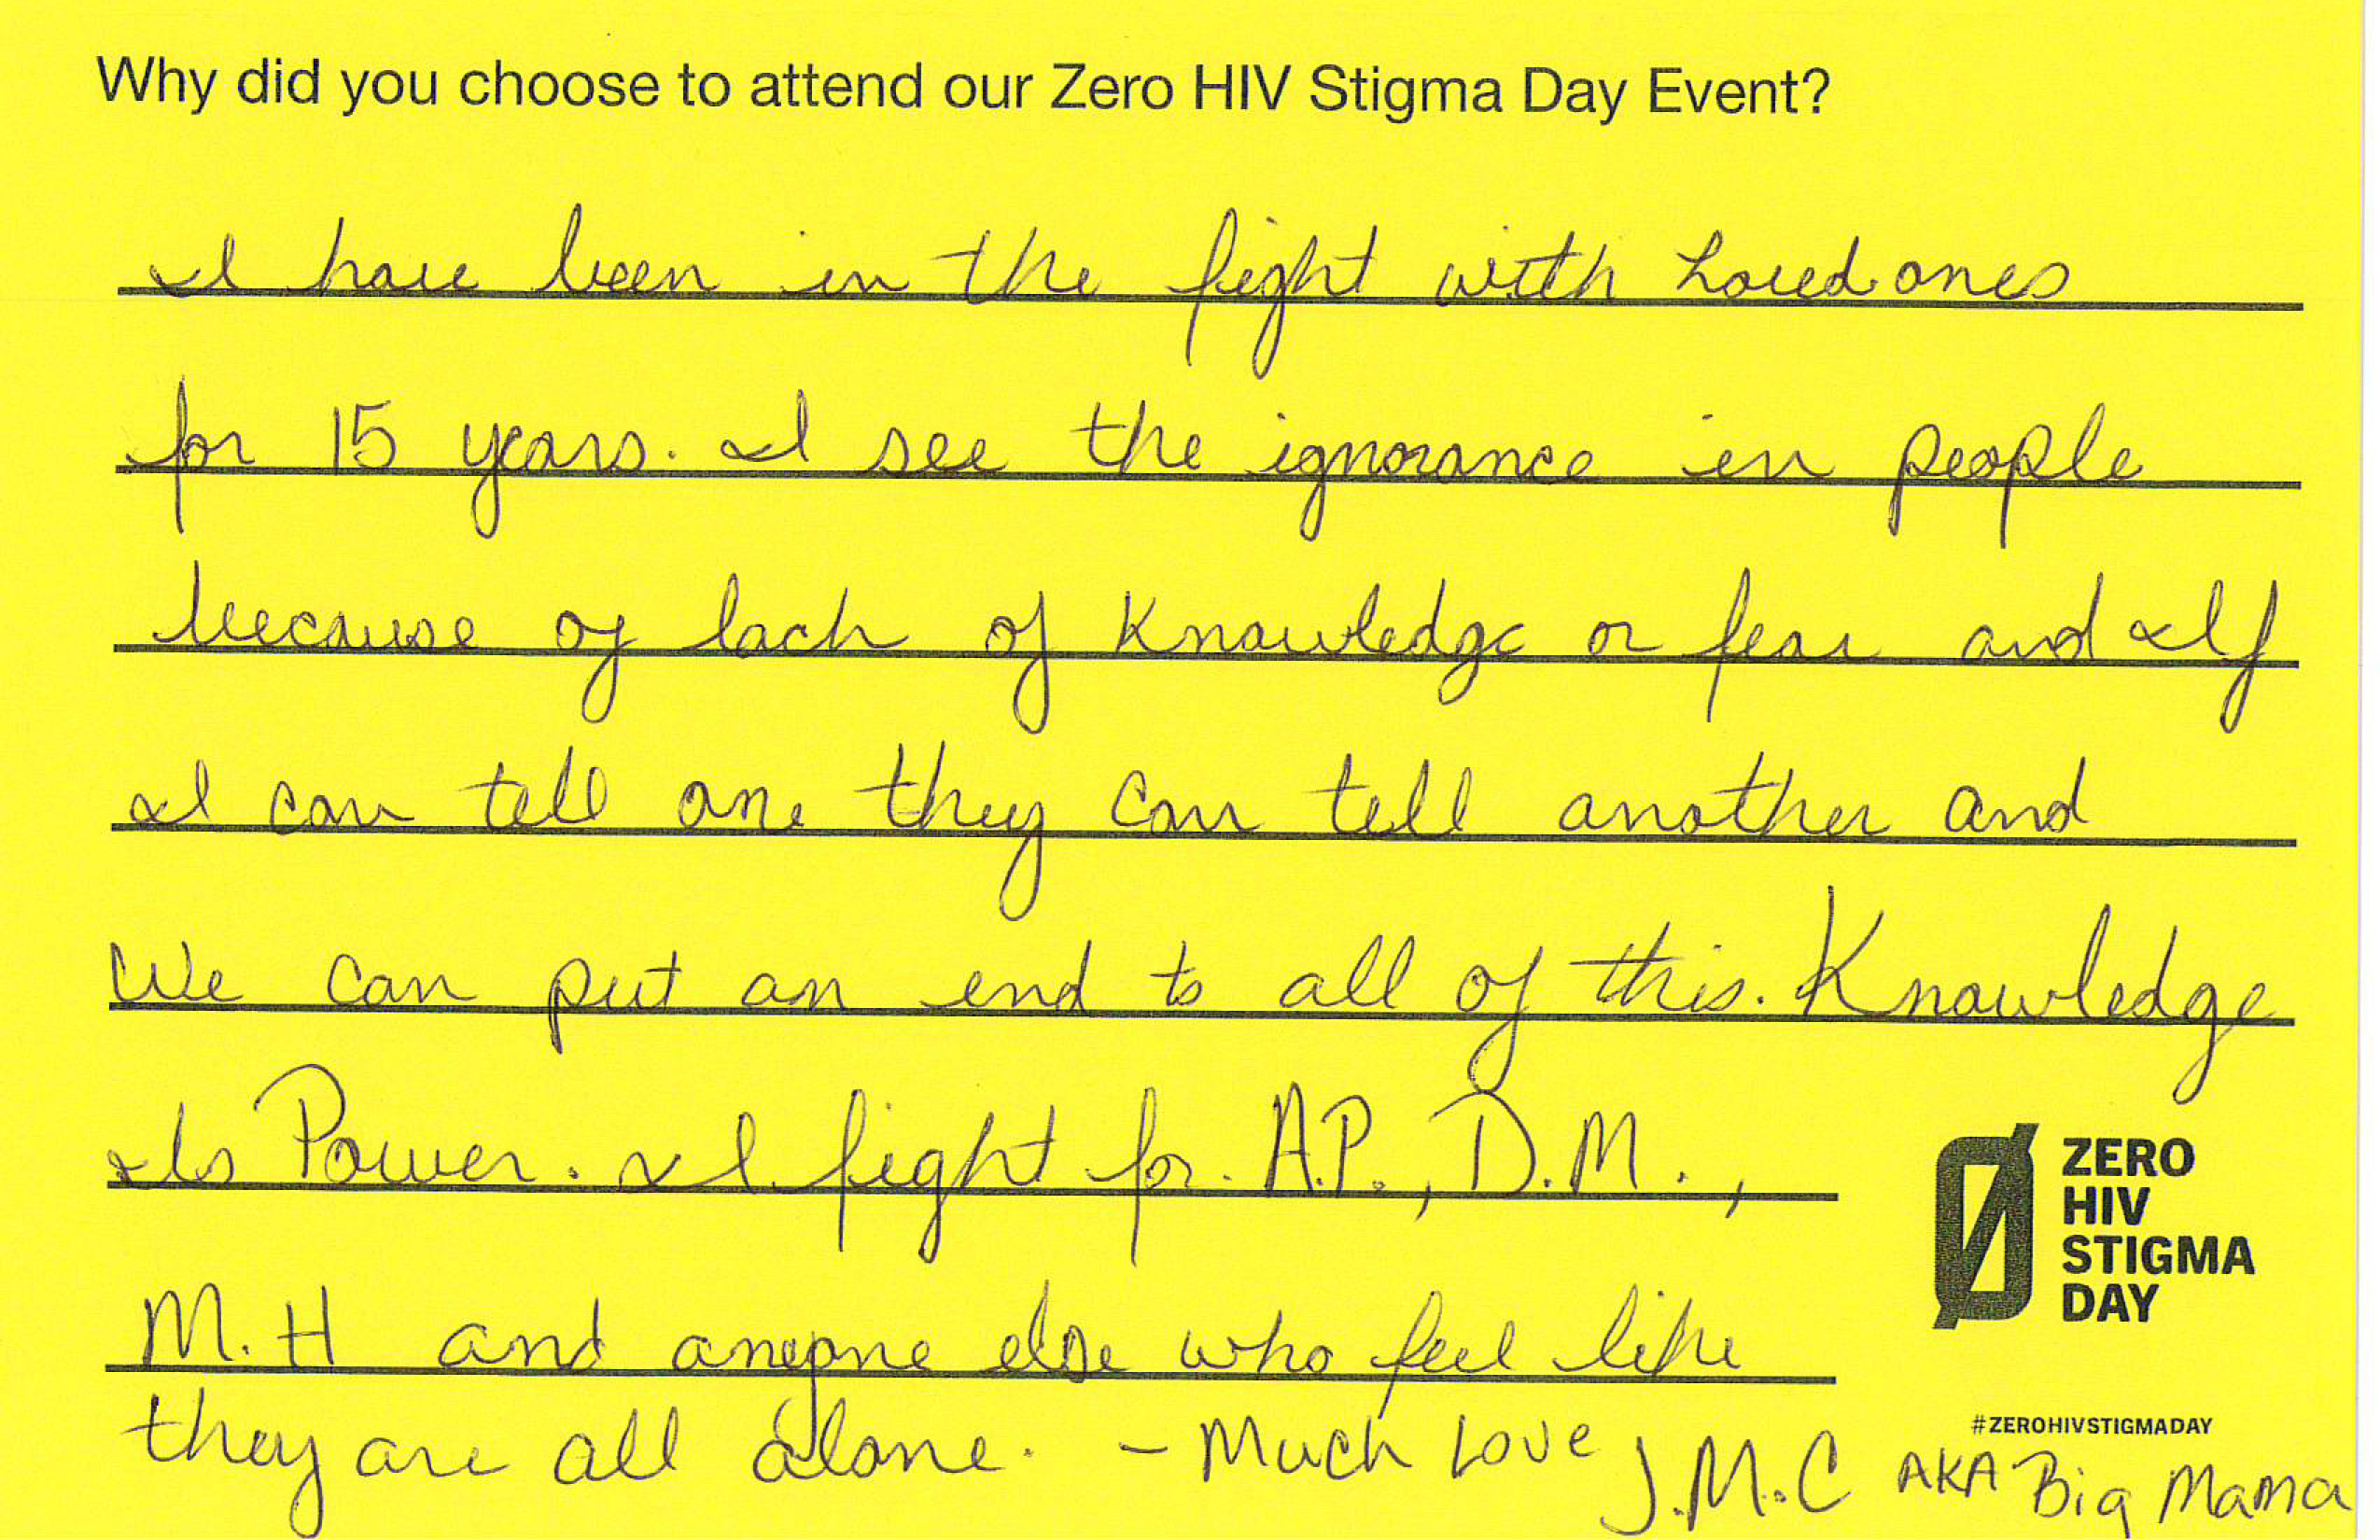 Why did you choose to attend our Zero HIV Stigma Day Event?
I have been in the fight with Loved ones
for 15 years. I see the ignorance in people
because of lack of Knowledge or fear and If
I can tell one they can tell another and
We can put an end to all of this. Knowledge
Is Power. I fight for A.P., D.M.,
M.H and anyone else who feel like
they are all alone. - Much Love J.M.C AKA Big Mama
ZERO
HIV
STIGMA
DAY
#ZEROHIVSTIGMADAY